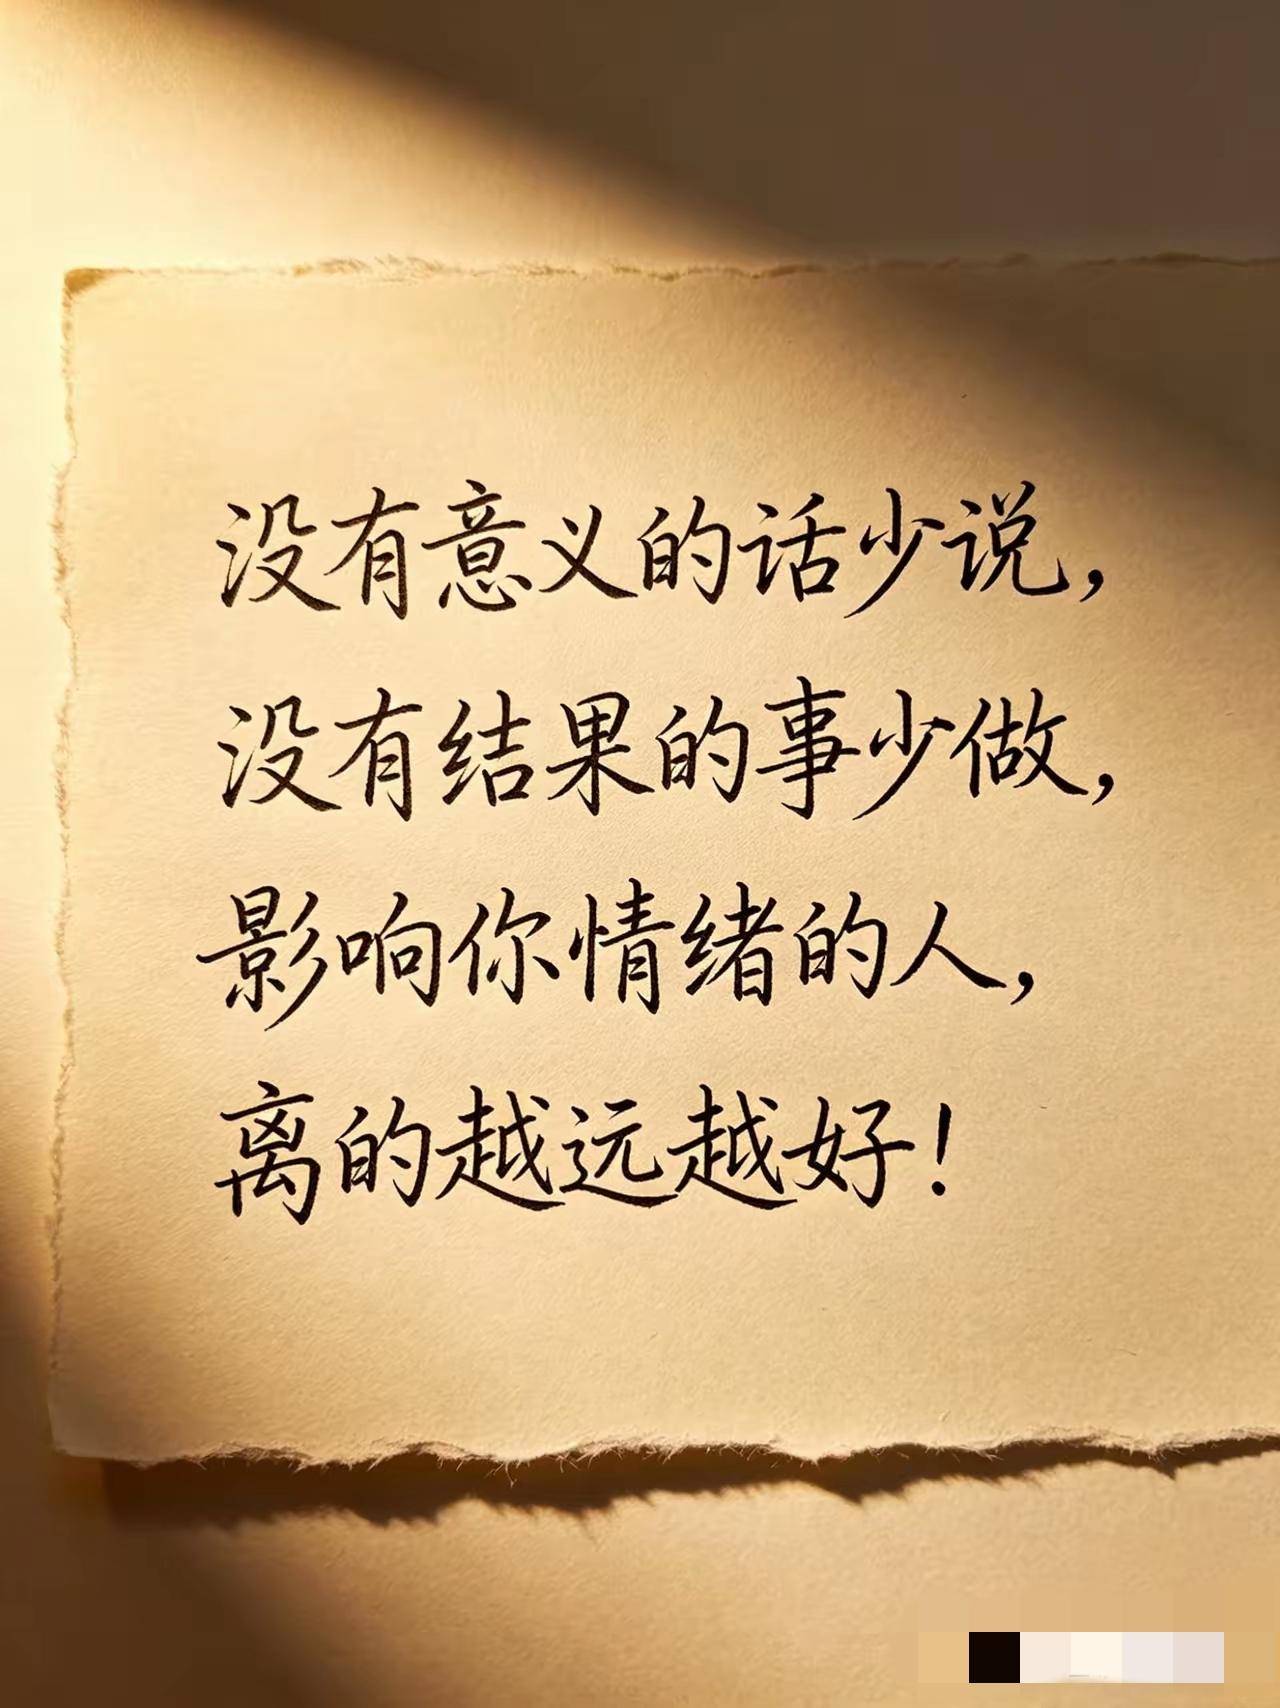 没有意义的话少说，
没有结果的事少做，
影响你情绪的人，
离的越远越好！